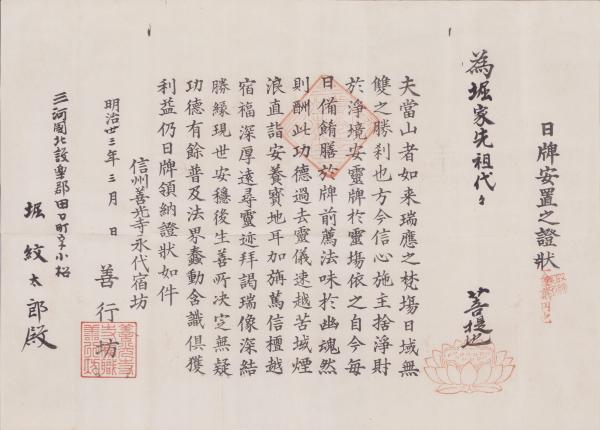 日牌安置之證狀
為堀家先祖代々
菩提也
夫當山者如来瑞應之梵場日域無
雙之勝利也方今信心施主捨淨財
於淨境安靈牌於靈場依之自今每
日備餚膳於牌前薦法味於幽魂然
則酬此功德過去靈儀速越苦域煙
浪直詣安養寳地耳加旃篤信檀越
宿福深厚遠尋靈迹拜謁瑞像深結
勝縁現世安穩後生善所决定無疑
功德有餘普及法界蠢動含識俱獲
利益仍日牌領納證狀如件
信州善光寺永代宿坊
明治廿三年三月　日　善行坊
三河國北設樂郡田口町字小松
堀紋太郎殿